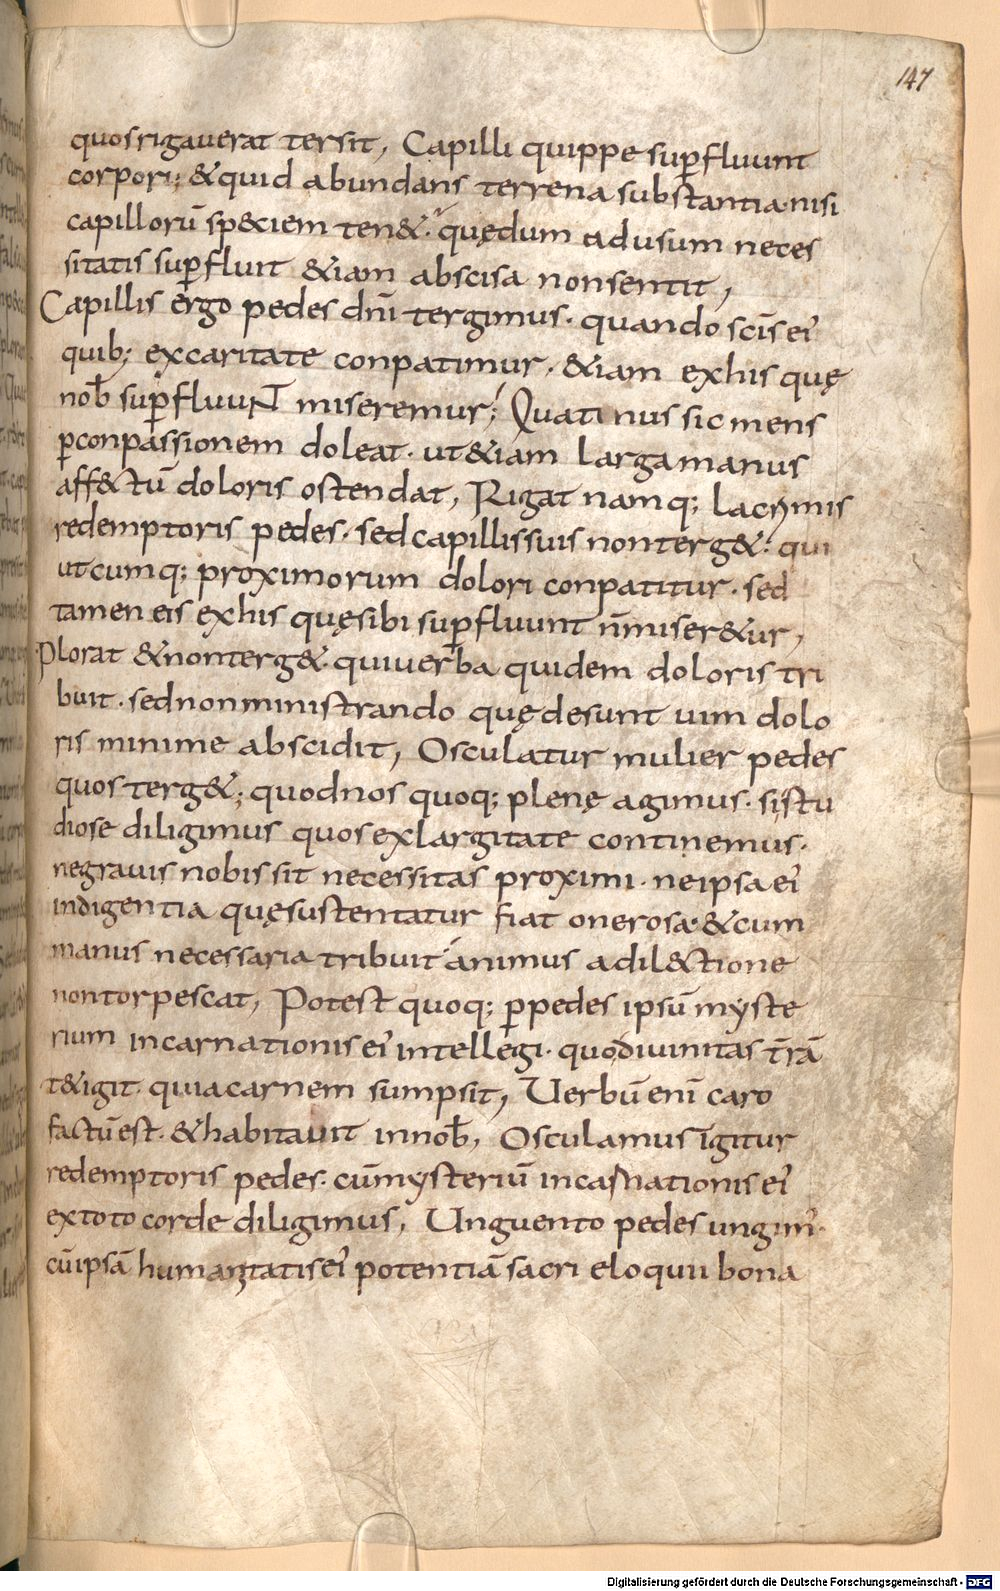 147
quos rigauerat tersit, Capilli quippe sup̄fluunt
corpori; & quid abundans terrena substantia nisi
capillorū sp&ciem ten&· quędum ad usum neces
sitatis sup̄fluit &iam abscisa non sentit,
Capillis ergo pedes dn̄i tergimus· quando scīs ei'
quib; ex caritate conpatimur· &iam ex his quę
nob̄ sup̄fluunt miseremur; Quatinus sic mens
p̄ conpassionem doleat· ut &iam larga manus
aff&tū doloris ostendat, Rigat namq; lacrymis
redemptoris pedes· sed capillis suis non terg&· qui
utcumq; proximorum dolori conpatitur· sed
tamen eis ex his quę sibi sup̄fluunt n̄ miser&ur,
Plorat & non terg&· qui uerba quidem doloris tri
buit· sed non ministrando quę desunt uim dolo
ris minime abscidit, Osculatur mulier pedes
quos terg&; quod nos quoq; plenę agimus· si stu
diose diligimus quos ex largitate continemus·
ne grauis nobis sit necessitas proximi· ne ipsa ei'
indigentia quę sustentatur fiat onerosa· & cum
manus necessaria tribuit animus a dil&tione
non torpescat, Potest quoq; p̄ pedes ipsū myste
rium incarnationis ei' intellegi· quo diuinitas t̄rā
t&igit· quia carnem sumpsit, Uerbū enī caro
factū est· & habitauit in nob̄, Osculamus igitur
redemptoris pedes· cū mysteriū incarnationis ei'
ex toto corde diligimus, Unguento pedes ungim'·
cū ipsā humanitatis ei' potentiā sacri eloquii bona
Digitalisierung gefördert durch die Deutsche Forschungsgemeinschaft - DFG